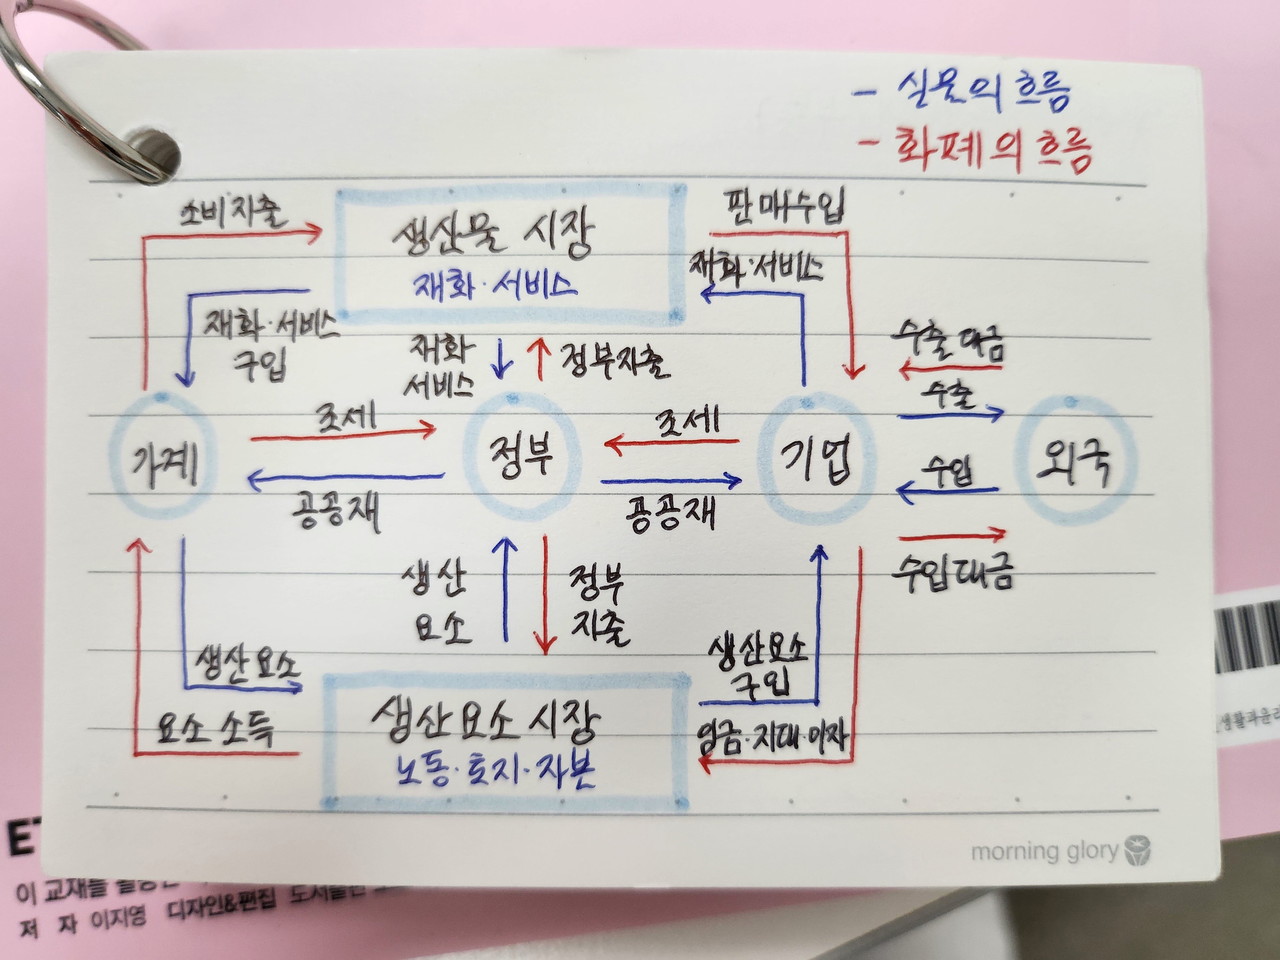 - 실물의 흐름
- 화폐의 흐름
소비지출
생산물 시장
재화·서비스
판매수입
재화·서비스
재화·서비스
구입
재화
서비스
정부지출
수출대금
수출
조세
조세
가계
정부
기업
외국
수입
공공재
공공재
수입대금
생산
요소
정부
지출
생산요소
생산요소
구입
요소 소득
생산요소 시장
노동·토지·자본
임금·지대·이자
morning glory
이 교재를
저 자 이지영 디자인&편집
생활과윤리